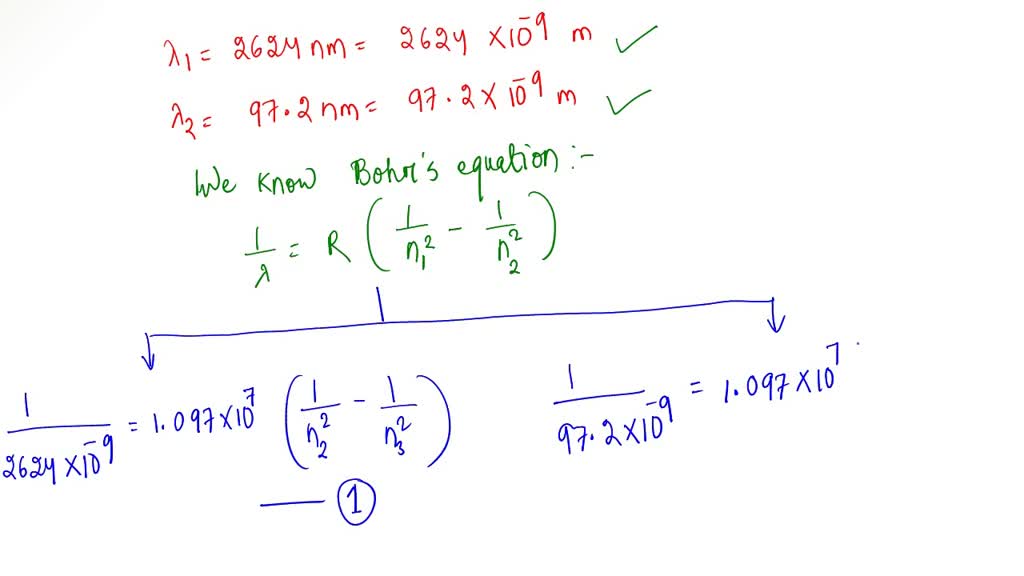 λ₁ = 2624 nm = 2624 × 10⁻⁹ m ✓
λ₂ = 97.2 nm = 97.2 × 10⁻⁹ m ✓
We know Bohr's equation :-
1/λ = R (1/n₁² - 1/n₂²)
1/(2624 × 10⁻⁹) = 1.097 × 10⁷ (1/n₂² - 1/n₃²)
—— ①
1/(97.2 × 10⁻⁹) = 1.097 × 10⁷ ·